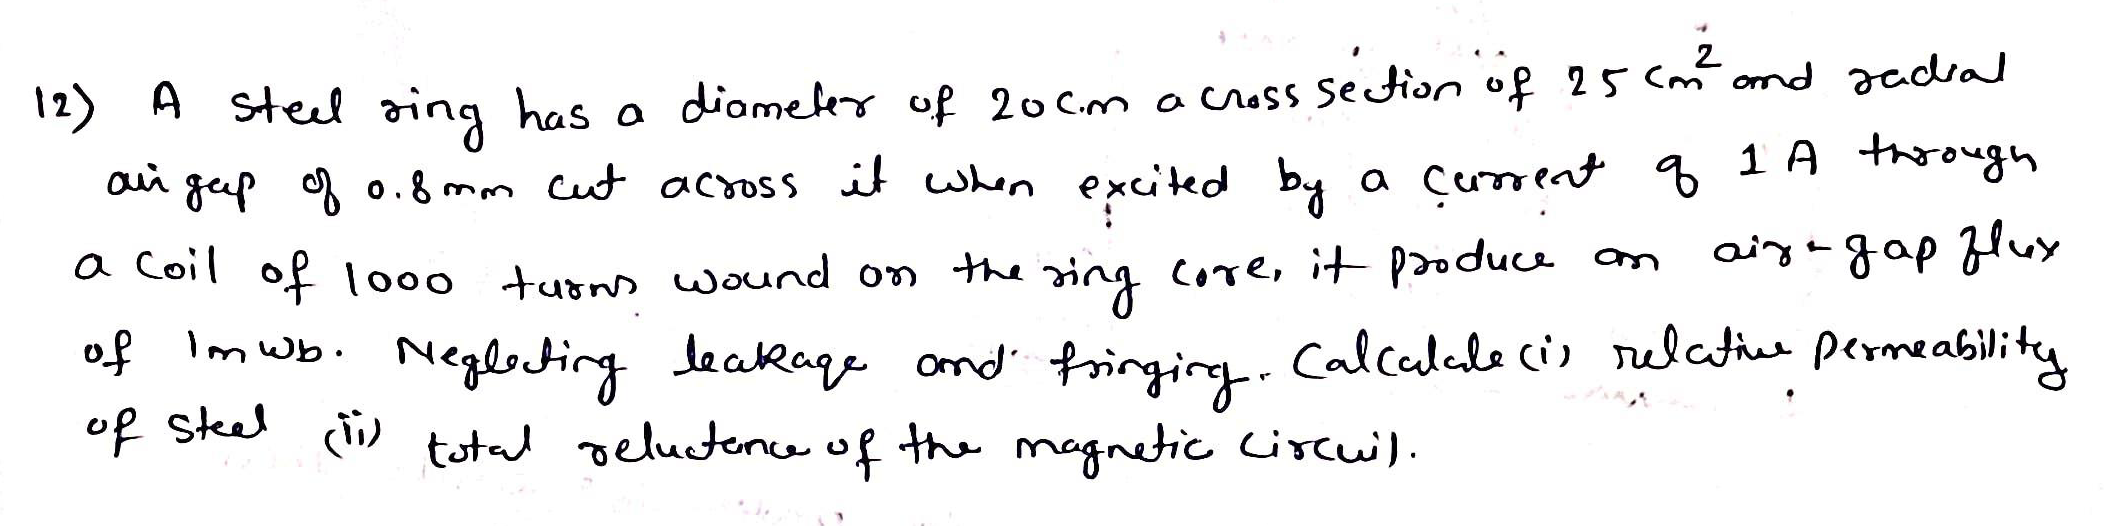 12) A steel ring has a diameter of 20 cm a cross section of 25 cm² and radial
air gap of 0.8 mm cut across it when excited by a current of 1 A through
a coil of 1000 turns wound on the ring core, it produce an air-gap flux
of 1m wb. Neglecting leakage and fringing. Calculate (i) relative permeability
of steel (ii) total reluctance of the magnetic circuit.